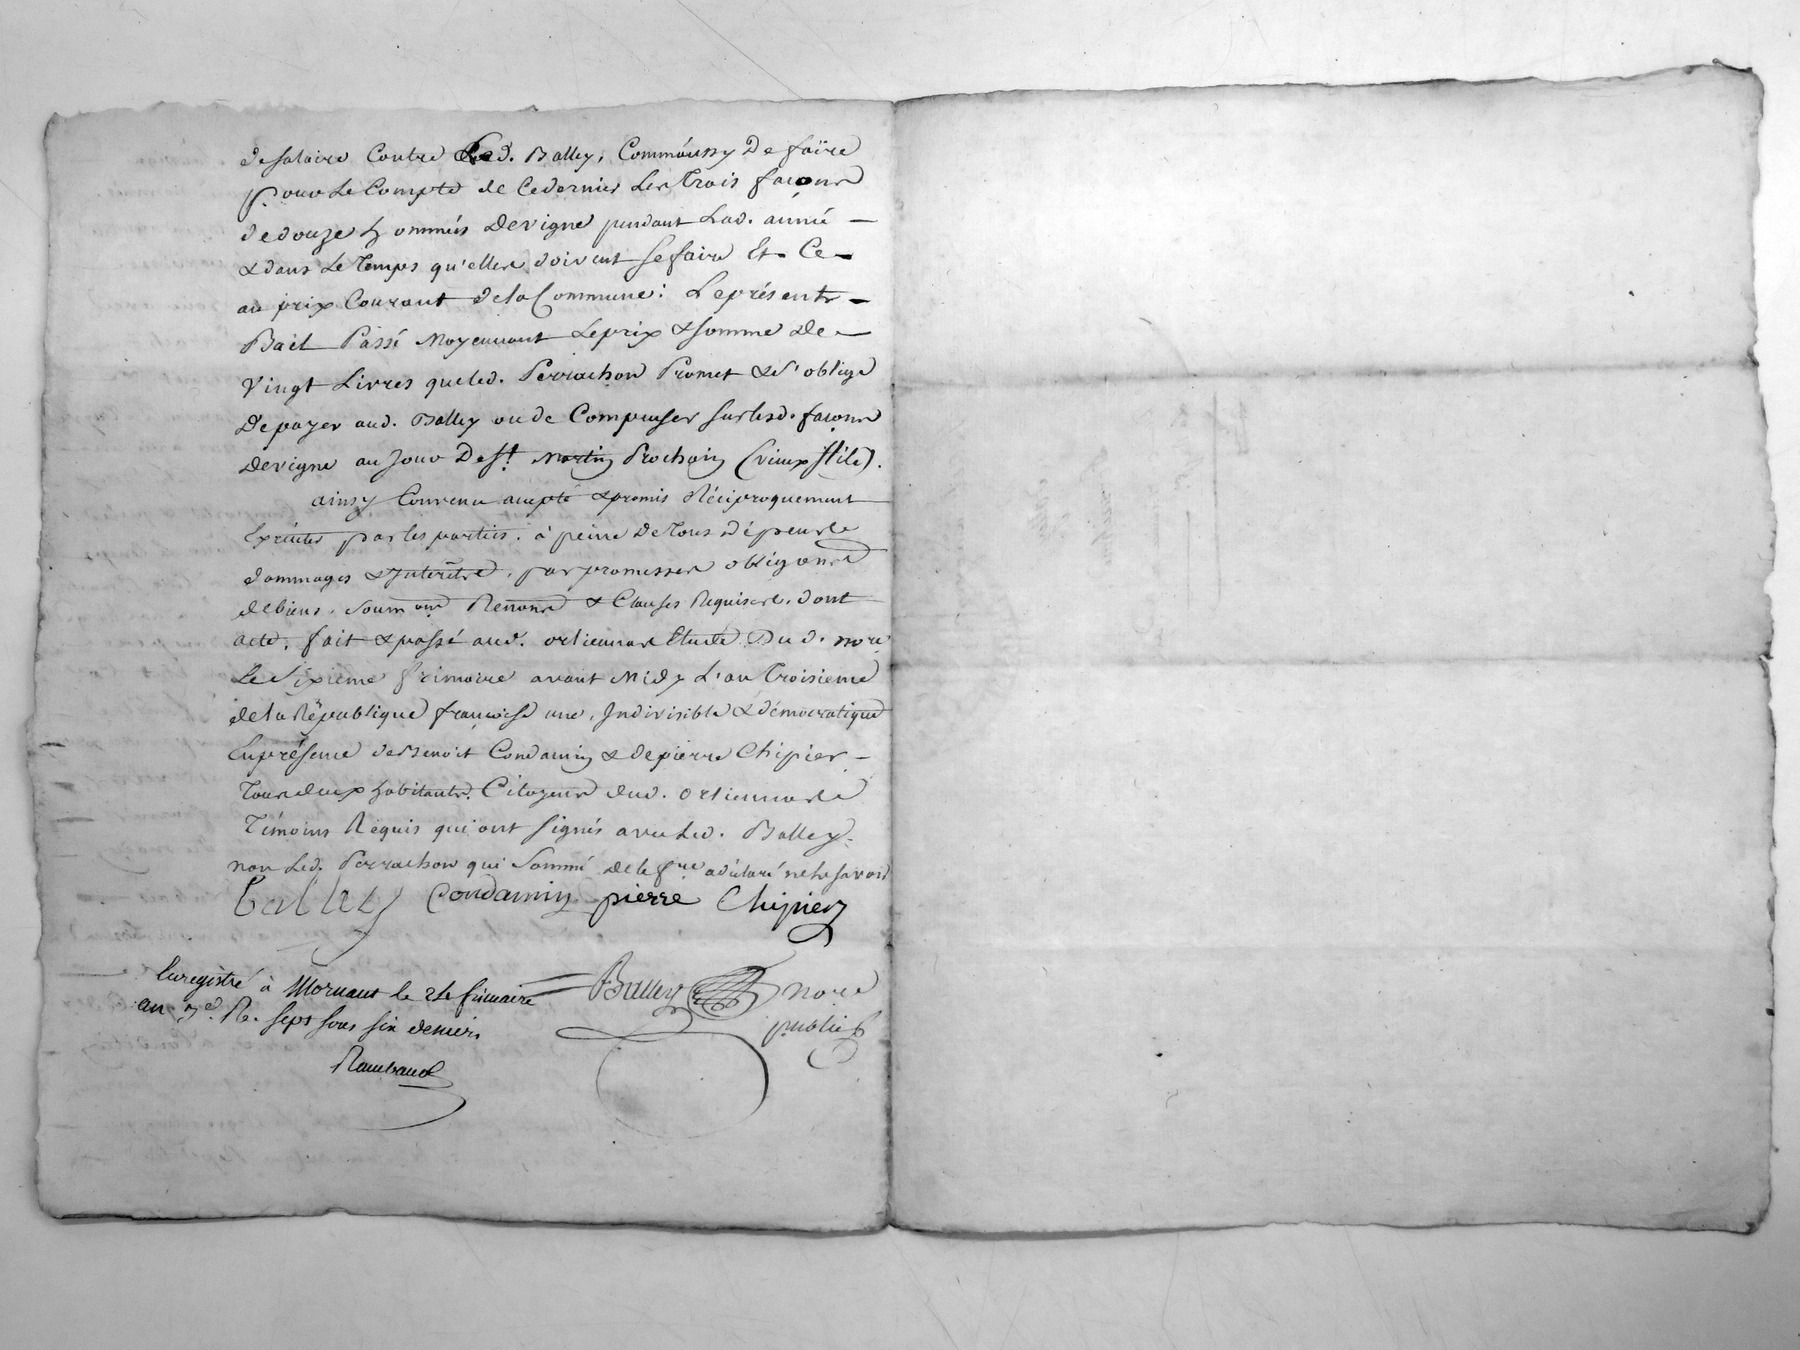 de salaire contre Led. Balley, Comm'aussy De faire
Pour Le Compte de Ce dernier Les Trois façons
de douze hommées De vigne pendant Lad. année —
& dans Le Temps qu'elles doivent Se faire Et Ce —
au prix Courant de la Commune: Le présent —
Bail Passé Moyennant Le prix & somme de —
Vingt Livres que led. Perrachon Promet & s'oblige
De payer aud. Balley ou de Compenser sur lesd. façons
De vigne au Jour De St. Martin Prochain (vieux stile).
ainsy Convenu accepté & promis Réciproquement
Exécuter par les parties. à peine De Tous dépens
dommages & Interêts, par promesses obligons
de biens, Soumons Renons & Clauses Requises. dont
acte, fait & passé aud. orlienas Etude Dud. nore
Le Sixieme frimaire avant Midy L'an Troisieme
de la République françoise une, Indivisible & démocratique
En présence de Benoit Condamin & de pierre Chipier —
Tous deux habitants. Citoyens dud. Orlienas
Témoins Requis qui ont signés avec Led. Balley.
non Led. Perrachon qui Sommé de le fre a déclaré ne le savoir
balley Condamin pierre Chipier
Enregistré à Mornant le frimaire
an 3e. R. sept sous six deniers
Rambaud
Balley nore
public